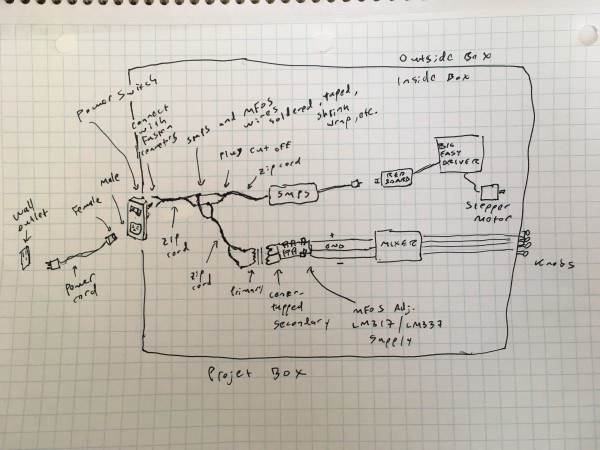 Outside Box
Inside Box
Power Switch
connect
with
Faston
connectors
SMPS and MFOS
wires
soldered, taped,
shrink
wrap, etc.
Plug cut off
zip cord
SMPS
RED
BOARD
BIG
EASY
DRIVER
Stepper
Motor
wall
outlet
Female
Male
Power
cord
zip
cord
zip
cord
Primary
center
tapped
secondary
+
GND
-
MIXER
Knobs
MFOS Adj.
LM317/LM337
Supply
Projet Box